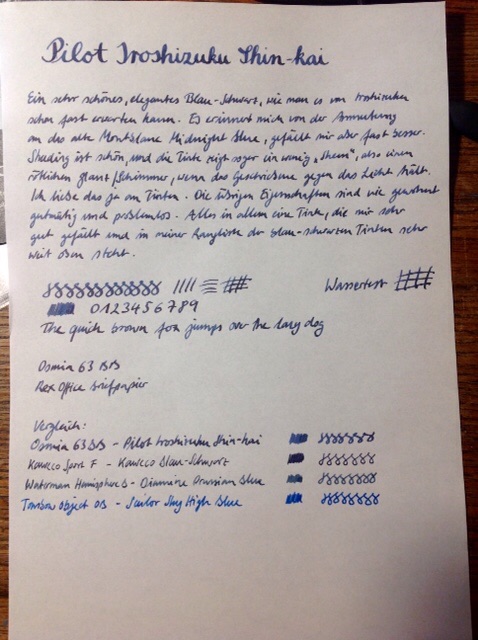 Pilot Iroshizuku Shin-kai
Ein sehr schönes, elegantes Blau-Schwarz, wie man es von Iroshizuku
schon fast erwarten kann. Es erinnert mich von der Anmutung
an das alte Montblanc Midnight Blue, gefällt mir aber fast besser.
Shading ist schön, und die Tinte zeigt sogar ein wenig „Sheen", also einen
rötlichen Glanz/Schimmer, wenn das Geschriebene gegen das Licht hält.
Ich liebe das ja an Tinten. Die übrigen Eigenschaften sind wie gewohnt
gutmütig und problemlos. Alles in allem eine Tinte, die mir sehr
gut gefällt und in meiner Rangliste der blau-schwarzen Tinten sehr
weit oben steht.
Wassertest
0123456789
The quick brown fox jumps over the lazy dog
Osmia 63 BB
Rex Office Briefpapier
Vergleich:
Osmia 63 BB - Pilot Iroshizuku Shin-kai
Kaweco Sport F - Kaweco Blau-Schwarz
Waterman Hemisphere B - Diamine Prussian Blue
Tombow Object OB - Sailor Sky High Blue